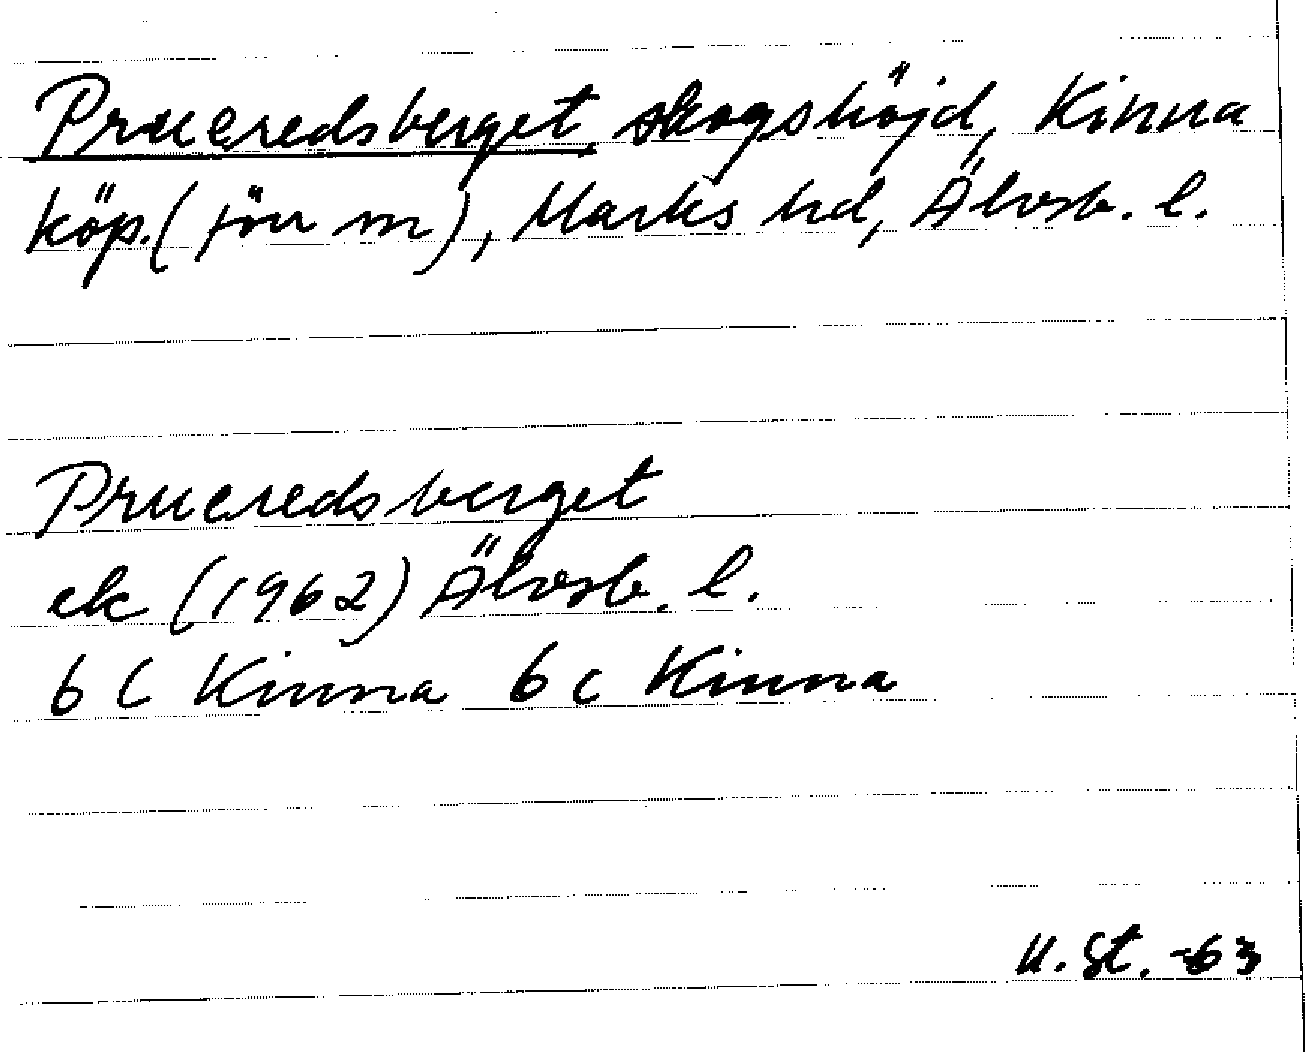 Prueredsberget, skogshöjd, Kinna
köp. (förr m), Marks hd, Älvsb. l.
Prueredsberget
ek (1962) Älvsb. l.
6 C Kinna 6 c Kinna
U. St. -63